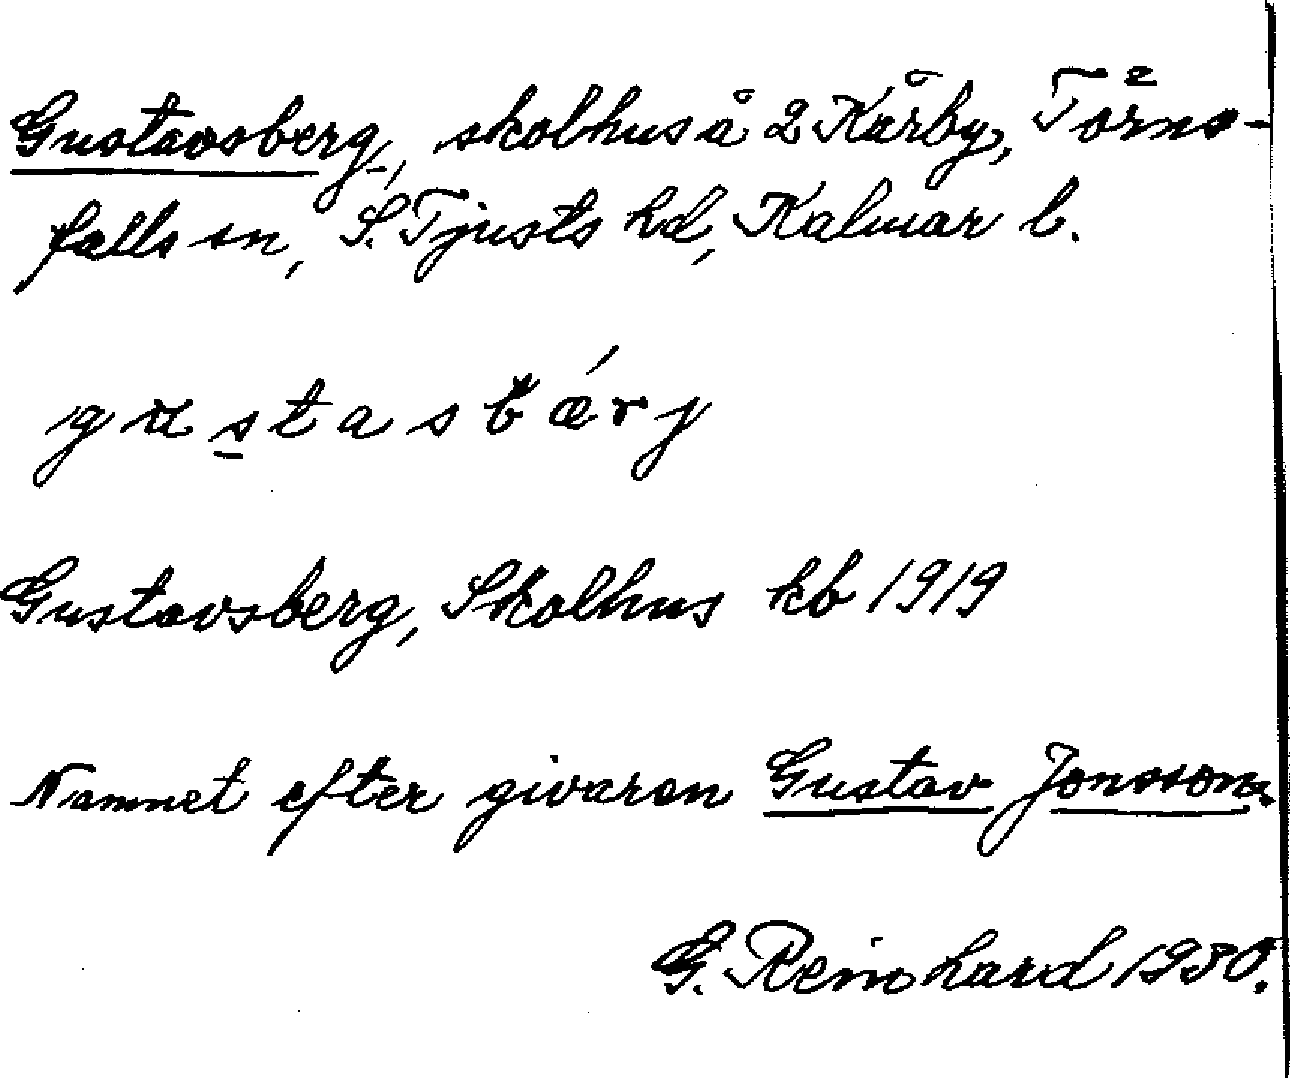 Gustavsberg, skolhus å 2 Kårby, Törns-
falls sn, S. Tjusts hd, Kalmar l.
gustasbǽrj
Gustavsberg, Skolhus kb 1919
Namnet efter givaren Gustav Jonsson.
G. Reinhard 1930.